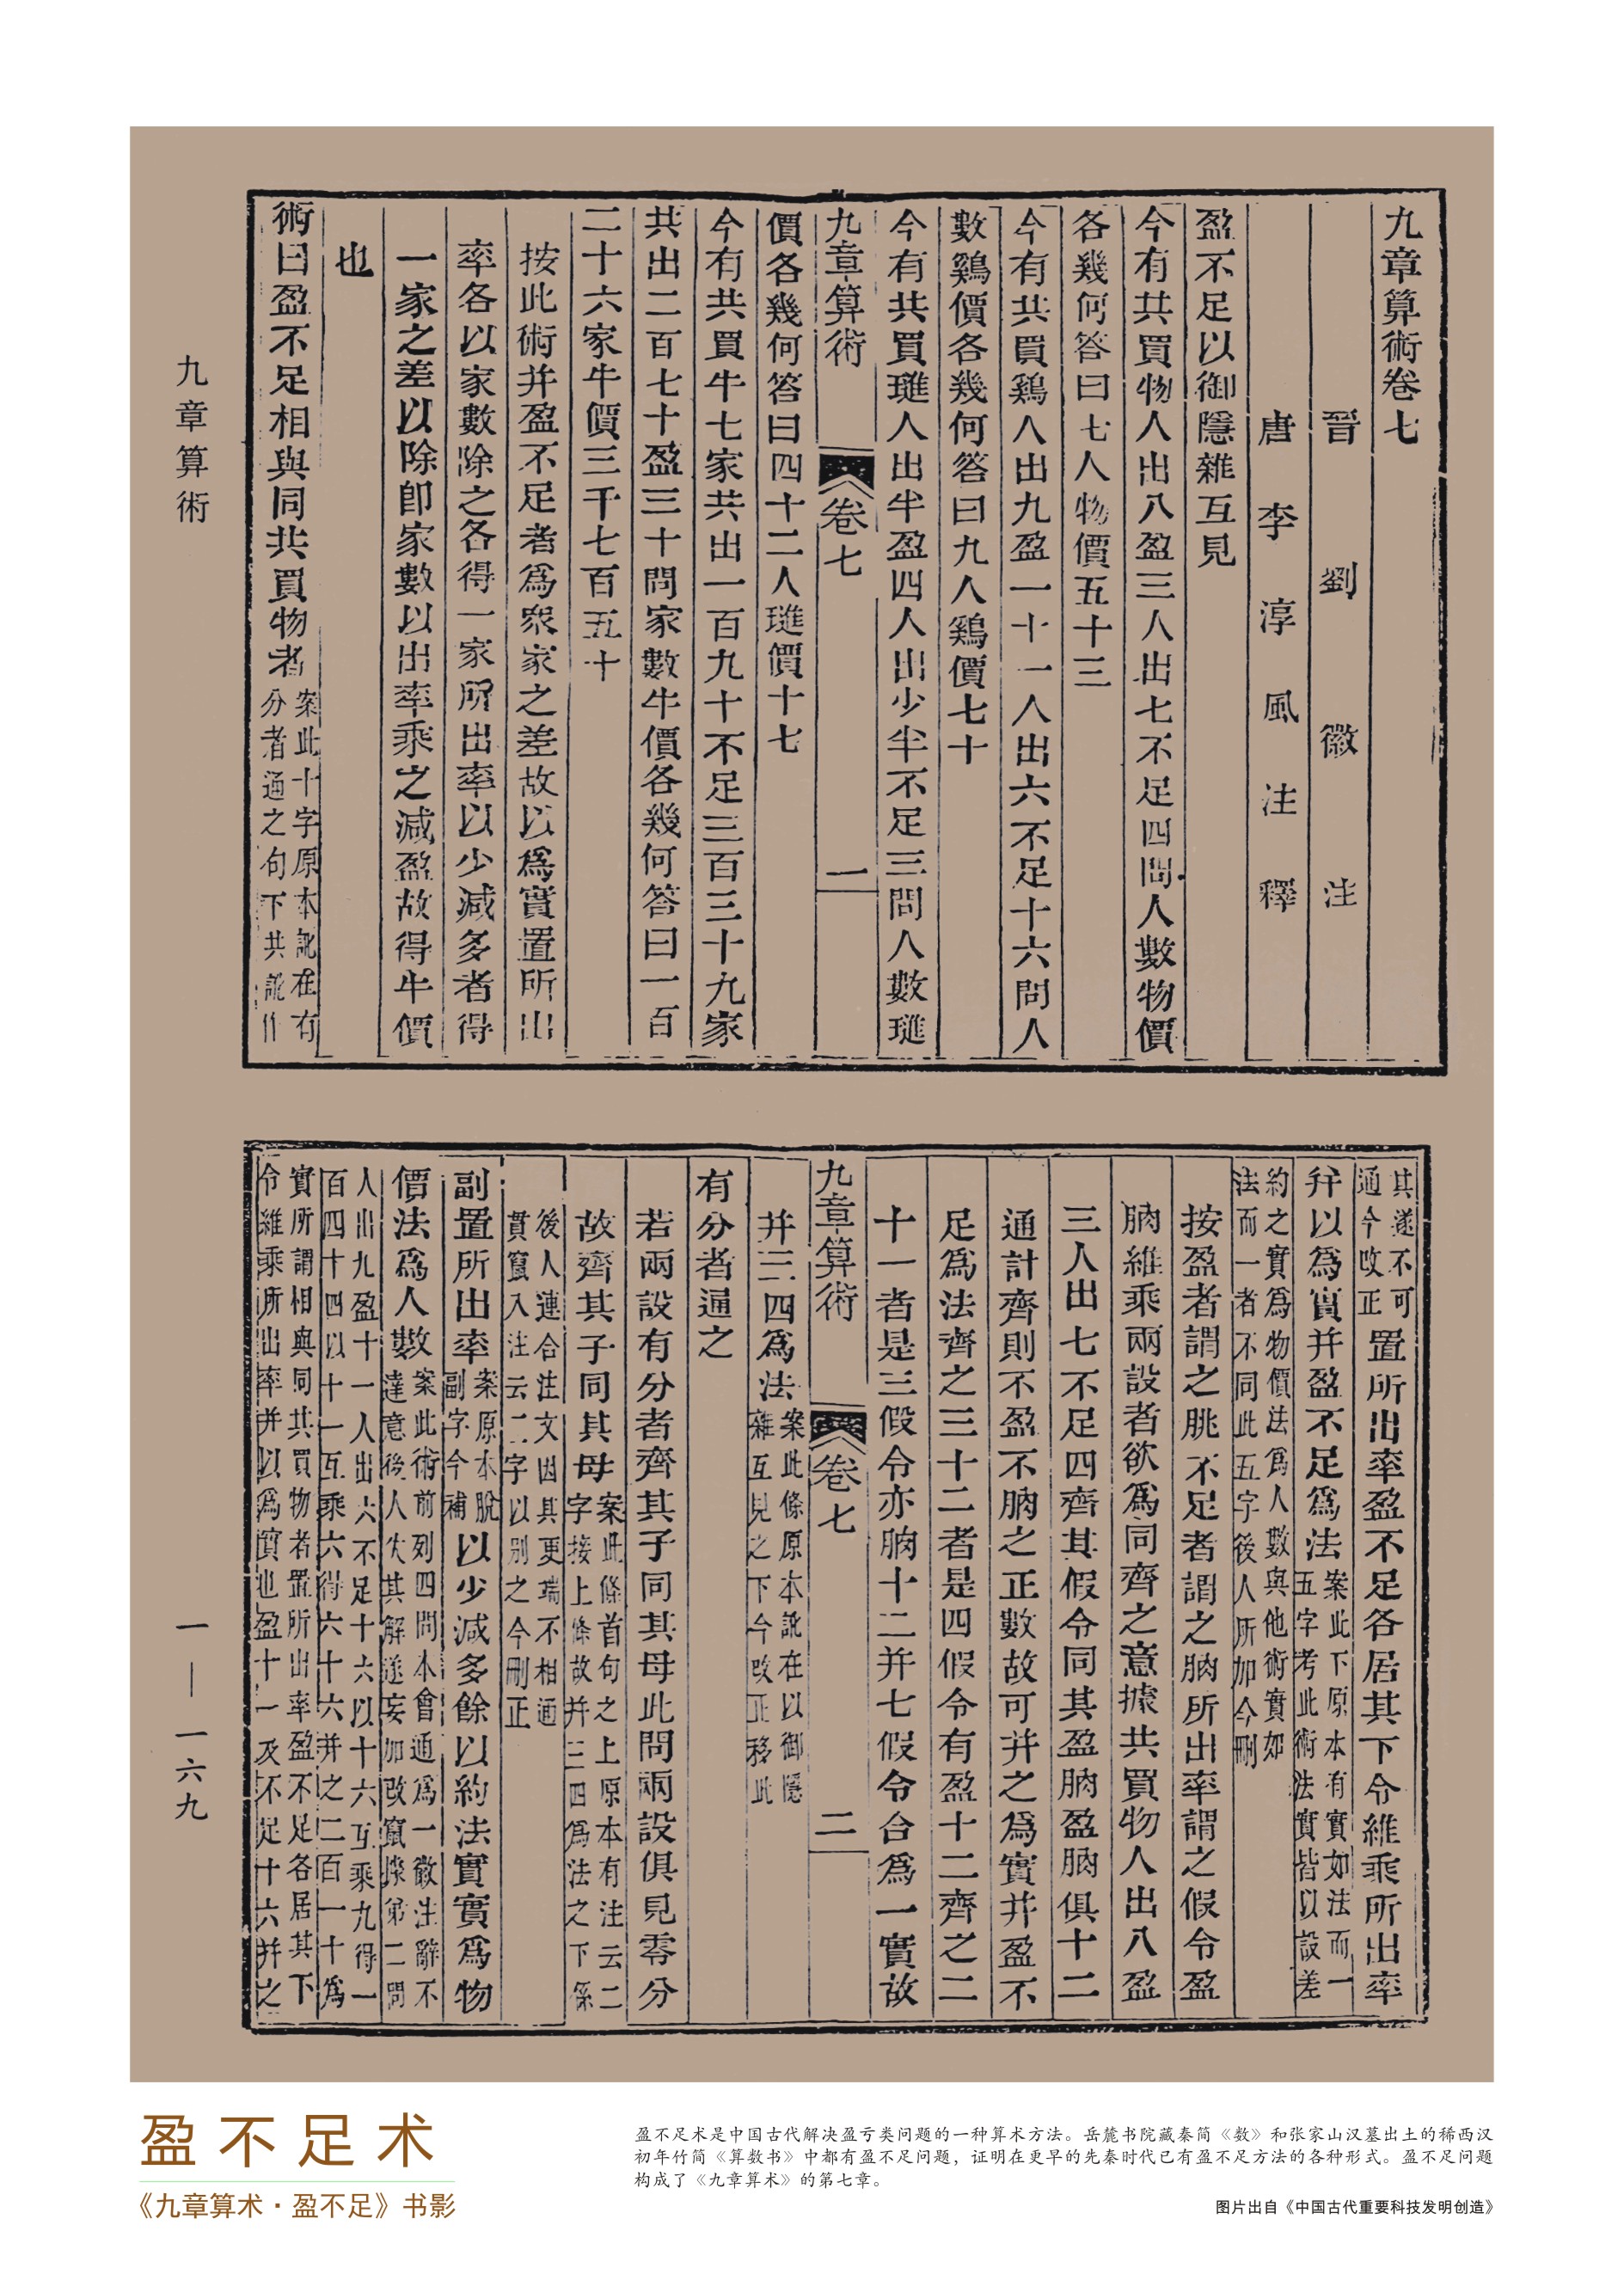 九章算術卷七
晉 劉 徽 注
唐 李 淳 風 注 釋
盈不足以御隱雜互見
今有共買物人出八盈三人出七不足四問人數物價
各幾何答曰七人物價五十三
今有共買鷄人出九盈一十一人出六不足十六問人
數鷄價各幾何答曰九人鷄價七十
今有共買璡人出半盈四人出少半不足三問人數璡
九章算術 卷七 一
價各幾何答曰四十二人璡價十七
今有共買牛七家共出一百九十不足三百三十九家
共出二百七十盈三十問家數牛價各幾何答曰一百
二十六家牛價三千七百五十
按此術并盈不足者爲衆家之差故以爲實置所出
率各以家數除之各得一家所出率以少減多者得
一家之差以除卽家數以出率乘之減盈故得牛價
也
術曰盈不足相與同共買物者案此十字原本訛在有
分者通之句下共訛作
九章算術
其遂不可
通今改正置所出率盈不足各居其下令維乘所出率
并以爲實并盈不足爲法案此下原本有實如法而一
五字考此術法實皆以設差
約之實爲物價法爲人數與他術實如
法而一者不同此五字後人所加今刪
按盈者謂之朓不足者謂之朒所出率謂之假令盈
朒維乘兩設者欲爲同齊之意據共買物人出八盈
三人出七不足四齊其假令同其盈朒盈朒俱十二
通計齊則不盈不朒之正數故可并之爲實并盈不
足爲法齊之三十二者是四假令有盈十二齊之二
十一者是三假令亦朒十二并七假令合爲一實故
九章算術 卷七 二
并三四爲法案此條原本訛在以御隱
雜互見之下今改正移此
有分者通之
若兩設有分者齊其子同其母此問兩設俱見零分
故齊其子同其母案此條首句之上原本有注云二
字接上條故并三四爲法之下係
後人連合注文因其更端不相通
貫竄入注云二字以別之今刪正
副置所出率案原本脫
副字今補以少減多餘以約法實實爲物
價法爲人數案此術前列四問本會通爲一徽注辭不
達意後人失其解遂妄加改竄據第二問
人出九盈十一人出六不足十六以十六互乘九得一
百四十四以十一互乘六得六十六并之二百一十爲
實所謂相與同共買物者置所出率盈不足各居其下
令維乘所出率并以爲實也盈十一及不足十六并之
一—一六九
盈不足术
《九章算术·盈不足》书影
盈不足术是中国古代解决盈亏类问题的一种算术方法。岳麓书院藏秦简《数》和张家山汉墓出土的稀西汉
初年竹简《算数书》中都有盈不足问题，证明在更早的先秦时代已有盈不足方法的各种形式。盈不足问题
构成了《九章算术》的第七章。
图片出自《中国古代重要科技发明创造》